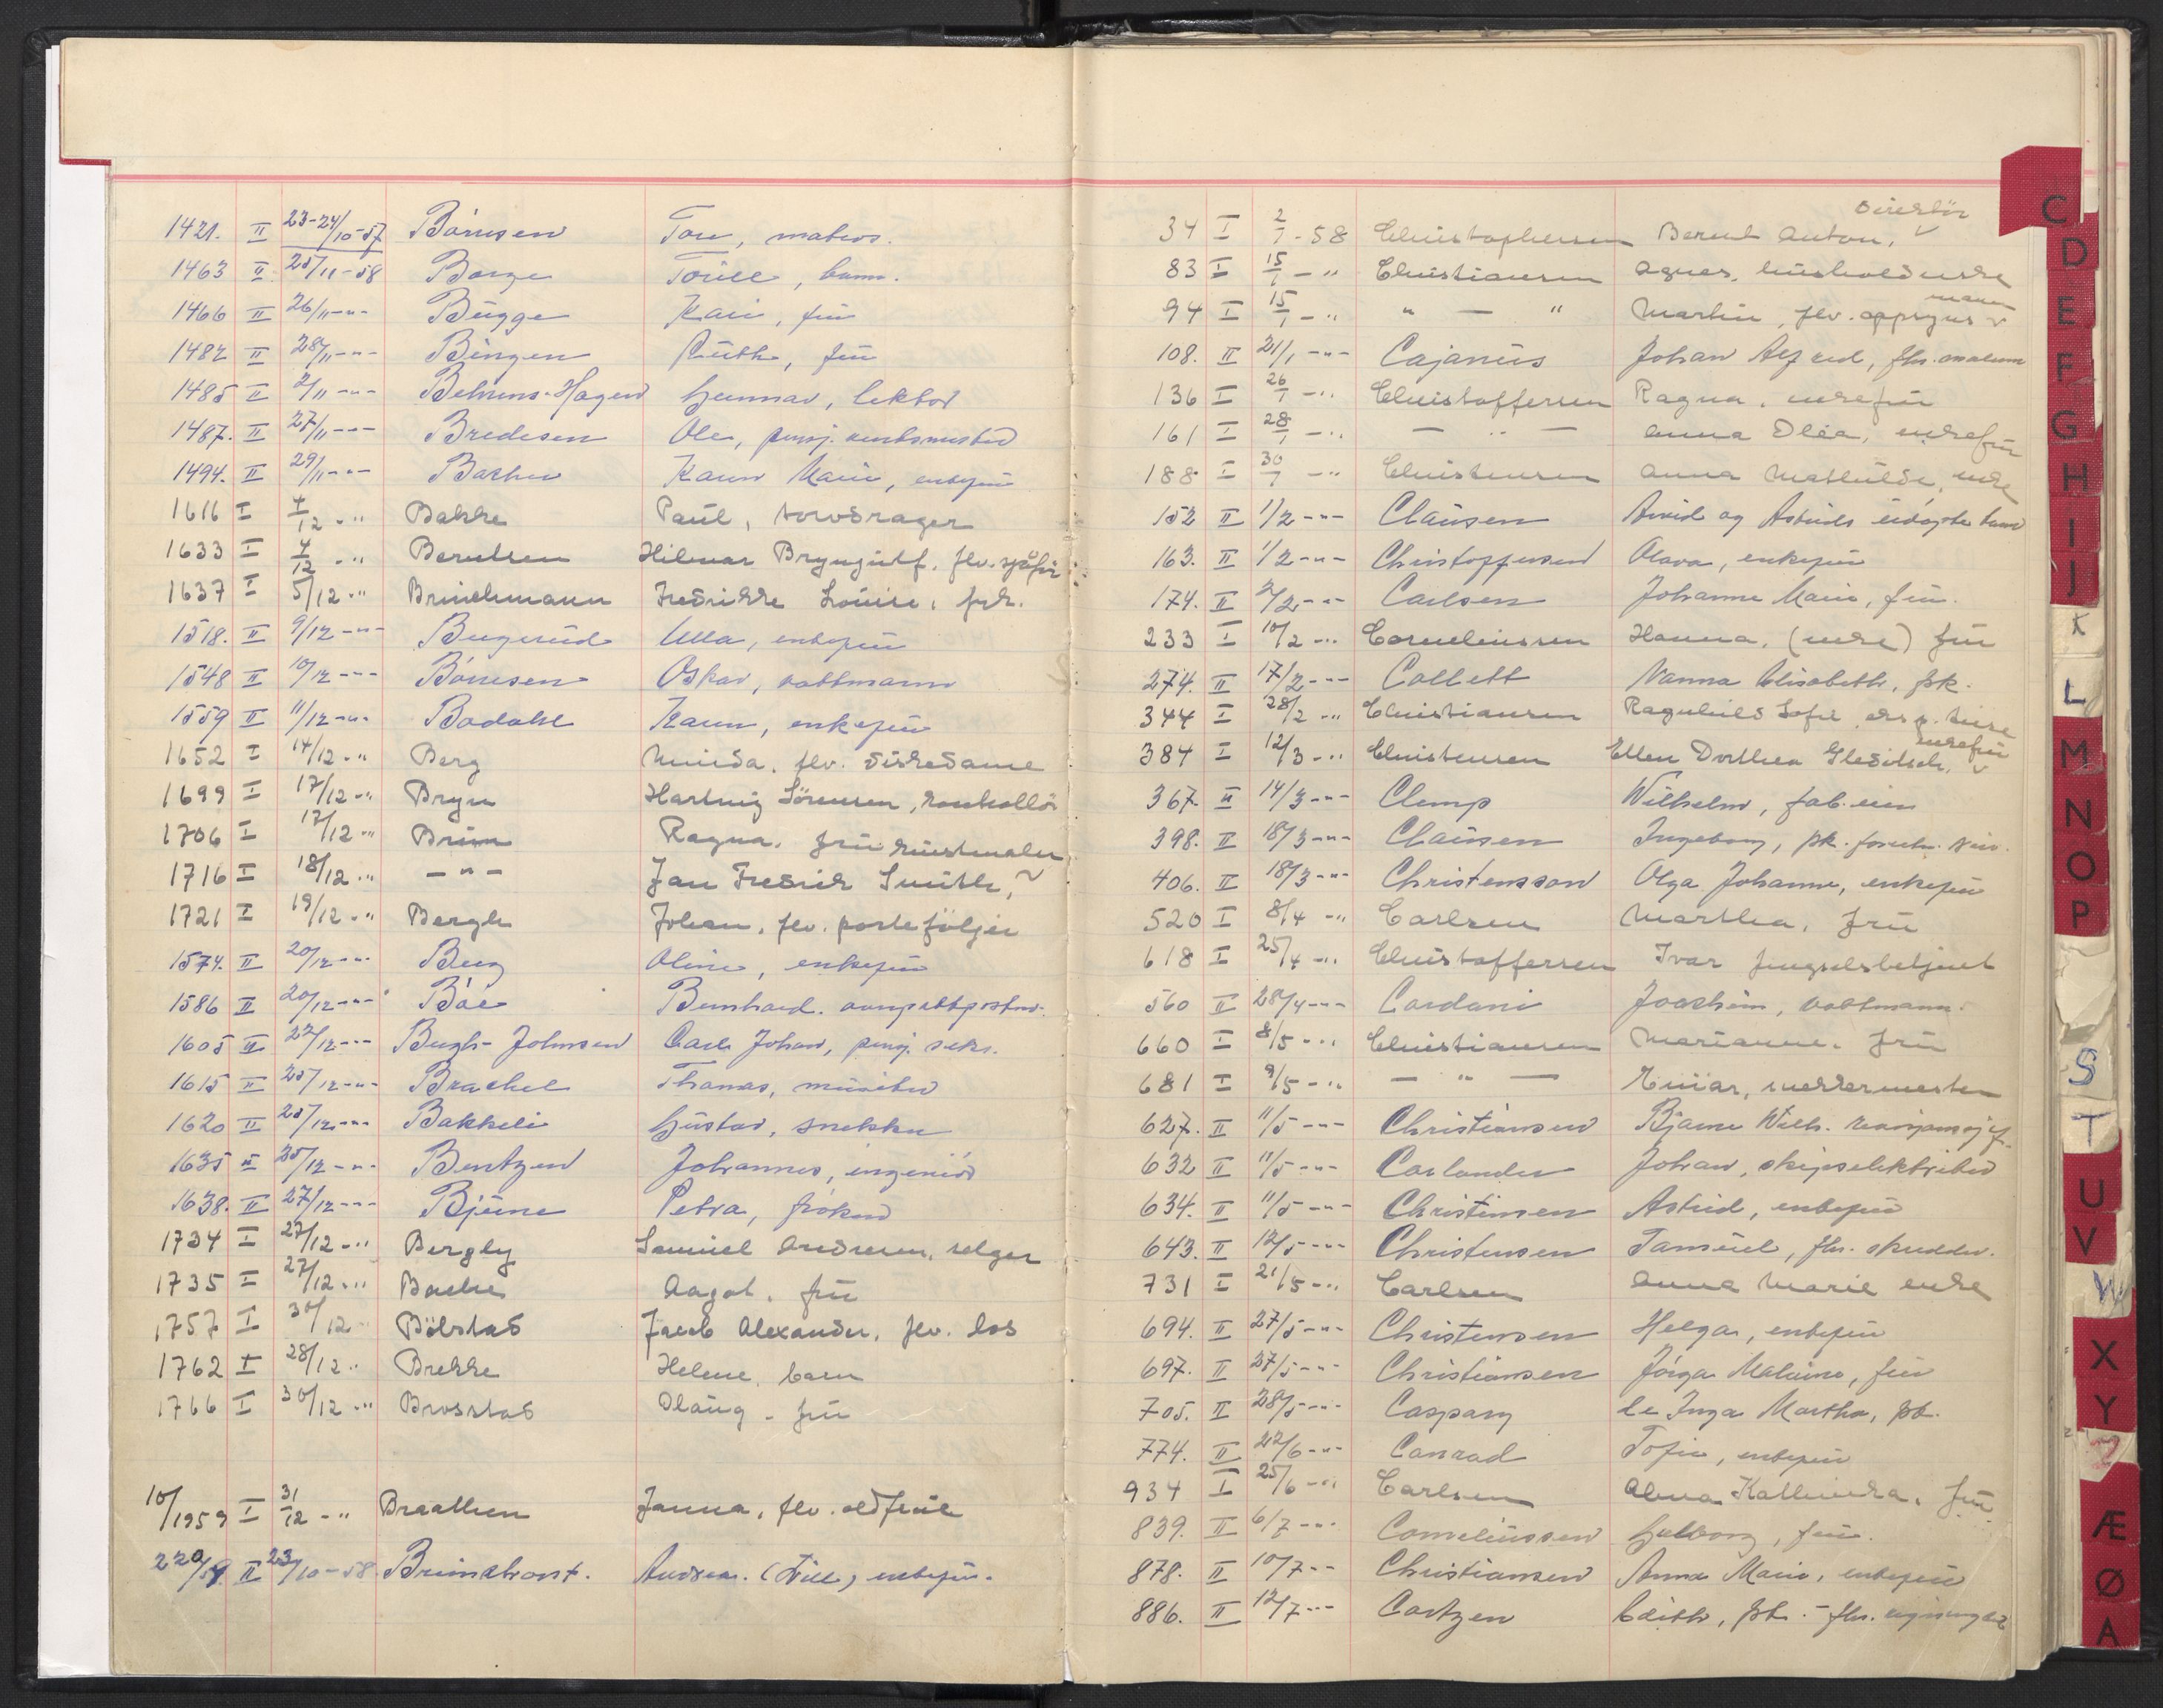 1421. II 23-24/10-57 Börresen Tore, matros.
1463 II 25/11-58 Borge Torill, barn.
1466 II 26/11 -"- Bugge Kari, fru
1482 II 28/11 -"- Bingen Ruth, fru
1485 II 2/11 -"- Behrens-Hagen Gunnar, lektor
1487. II 27/11 -"- Bredesen Ole, pensj.
1494. II 29/11 -"- Karen Marie, enkefru
1616 I 4/12 -" Bakke Paul,
1633 I 4/12 -" Berntsen Hilmar Bryngulf, flv. sjåfør
1637 I 5/12 -" Brinchmann Fredrikke Louise, frk.
1518. II 9/12 -"- Bugerud Ulla, enkefru
1548 II 10/12 -"- Börresen Oskar, vaktmann
1559 II 11/12 -"- Bodahl Karen, enkefru
1652 I 14/12 -" Berg flv.
1699 I 17/12 -" Bryn Hartvig Sörensen, kontrollör
1706 I 17/12 -" Bruun Ragna, fru kunstmaler
1716 I 18/12 -" - " - Jan Fredrik Smith,
1721 I 19/12 -" Bergh Johan, flv. porteföljer
1574. II 20/12 -"- Berg Oline, enkefru
1586 II 20/12 -"- Böe Bernhard.
1605 II 22/12 -"- Bugh-Johnsen Carl Johan, pensj. seks.
1615 II 25/12 -"- Brachel Thomas, musiker
1620 II 25/12 -"- Bakkeli Gustav, snekker
1635 II 25/12 -"- Bentzen Johannes, ingeniör
1638. II 27/12 -"- Bjune Petra, fröken
1734 I 27/12 -" Bergly Samuel Andresen, selger
1735 I 27/12 -" Bache Aagot, fru
1757 I 30/12 " Bölstad Jacob Alexander, flv. los
1762 I 28/12 " Brekke Helene, barn
1766 I 30/12 -" Brosstad Olaug - fru
10/1959 I 31/12 -" Braathen Janna, flv. oldfrue
220/59 II 23/10-58 Andrea. (Dill) enkefru.
direktör
34 I 2/1 - 58 Christophersen Bernt Anton, v
83 I 15/1 - " Christiansen Agnes, husholderske
mann
94 I 15/1 - " " — " Martin, flv. oppsyns v
108. II 21/1 -"- Cajanus Johan Alfred, fhv.
136 I 26/1 -" Christoffersen Ragna, enkefru
161 I 28/1 -" — " — Anna Oléa, enkefru
188 I 30/1 -" Christensen Anna Mathilde, enke
152 II 1/2 -"- Clausen Arvid og Astrids udöpte barn
163. II 1/2 -"- Christoffersen Olava, enkefru
174. II 2/2 -"- Carlsen Johanne Marie, fru.
233 I 10/2 -" Corneliussen Hanna, (enke) fru
274. II 17/2 -"- Collett Nanna Elisabeth, frk.
344 I 28/2 -" Christiansen Ragnhild Sofie
enkefru
384 I 12/3 -" Christensen Ellen Dorthea Gleditsch, v
367. II 14/3 -"- Clemp Wilhelm, fab.eier
398. II 18/3 -"- Clausen Ingeborg, frk.
406. II 18/3 -"- Christensson Olga Johanne, enkefru
520 I 8/4 -" Carlsen Martha, fru
618 I 25/4 -" Christoffersen Ivar fengselsbetjent
560 II 28/4 -"- Cordani Joachim, vaktmann.
660 I 8/5 -" Christiansen Marianne. fru
681 I 9/5 -" — " — Einar, mekkermester
627. II 11/5 -"- Christiansen Bjarne Wilh.
632 II 11/5 -"- Carlander Johan, skipselektriker
634. II 11/5 -"- Christensen Astrid, enkefru
643. II 12/5 -"- Christensen Samuel, fhv.
731 I 21/5 -" Carlsen Anna Marie enke
694. II 27/5 -"- Christensen Helga, enkefru
697. II 27/5 -"- Christiansen Malvine, fru
705. II 28/5 -"- Caspary Inga Martha, frk.
774. II 22/6 -"- Conrad Sofie, enkefru
934 I 25/6 -" Carlsen Alma Kathinka, fru
839. II 6/7 -"- Corneliussen Gulborg, fru.
878. II 10/7 -"- Christiansen Anna Marie, enkefru
886. II 12/7 -"- Cortzen Edith, frk. - fhv.
C
D
E
F
G
H
I
J
K
L
M
N
O
P
S
T
U
V
W
X
Y
Z
Æ
Ø
A